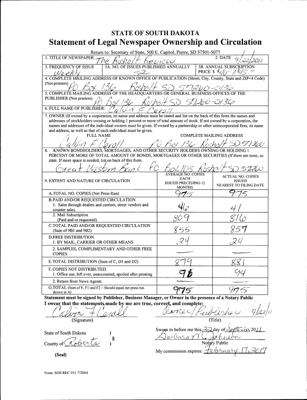 STATE OF SOUTH DAKOTA
Statement of Legal Newspaper Ownership and Circulation
Return to: Secretary of State, 500 E. Capitol, Pierre, SD 57501-5077
1. TITLE OF NEWSPAPER The Rosholt Review 2. DATE
3. FREQUENCY OF ISSUE Weekly 3A. NO. OF ISSUES PUBLISHED ANNUALLY 52 3B. ANNUAL SUBSCRIPTION PRICE $
4. COMPLETE MAILING ADDRESS OF KNOWN OFFICE OF PUBLICATION (Street, City, County, State and ZIP+4 Code)
(Not printers) PO Box 136 Rosholt SD 57260-0136
5. COMPLETE MAILING ADDRESS OF THE HEADQUARTERS OR GENERAL BUSINESS OFFICES OF THE
PUBLISHER (Not printer) PO Box 136 Rosholt SD 57260-0136
6. FULL NAME OF PUBLISHER
7. OWNER (If owned by a corporation, its name and address must be stated and
addresses of stockholders owning or holding 1 percent or more of total amount of stock. If not owned by a corporation, the
names and addresses of the individual owners must be given. If owned by a partnership or other unincorporated firm, its name
and address, as well as that of each individual must be given.
FULL NAME COMPLETE MAILING ADDRESS
PO Box 136 Rosholt SD 57260
8. KNOWN BONDHOLDERS, MORTGAGEES, AND OTHER SECURITY HOLDERS OWNING OR HOLDING 1
PERCENT OR MORE OF TOTAL AMOUNT OF BONDS, MORTGAGES OR OTHER SECURITIES (If there are none, so
state. If more space is needed, list on back of this form.
Great Western Bank PO Box 105 Rosholt SD 57260
9. EXTENT AND NATURE OF CIRCULATION AVERAGE NO. COPIES EACH ISSUED PRECEDING 12 MONTHS ACTUAL NO. COPIES ISSUED NEAREST TO FILING DATE
A. TOTAL NO. COPIES (Net Press Run) 975 975
B. PAID AND/OR REQUESTED CIRCULATION
1. Sales through dealers and carriers, street vendors and counter sales. 46 41
2. Mail Subscription (Paid and/or requested) 809 816
C. TOTAL PAID AND/OR REQUESTED CIRCULATION (Sum of 9B1 and 9B2) 855 857
D. FREE DISTRIBUTION
1. BY MAIL, CARRIER OR OTHER MEANS 24 24
2. SAMPLES, COMPLIMENTARY AND OTHER FREE COPIES
E. TOTAL DISTRIBUTION (Sum of C, D1 and D2) 879 881
F. COPIES NOT DISTRIBUTED
1. Office use, left over, unaccounted, spoiled after printing 96 94
2. Return from News Agents
G. TOTAL (Sum of E, F1 and F2 - Should equal net press run shown in A) 975 975
Statement must be signed by Publisher, Business Manager, or Owner in the presence of a Notary Public
I swear that the statements made by me are true, correct, and complete:
Owner/Publisher
(Signature) (Title)
State of South Dakota )
County of Roberts )
Sworn to before me this 22 day of September 2011
Notary Public
(Seal)
My commission expires: February 17, 2017